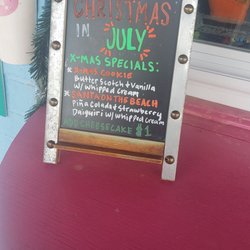 CHRISTMAS
IN JULY
X-MAS SPECIALS:
* XMAS COOKIE
Butter Scotch & Vanilla
w/ Whipped Cream
* SANTA ON THE BEACH
Piña Colada & Strawberry
Daiquiri w/ Whipped Cream
ADD CHEESECAKE $1